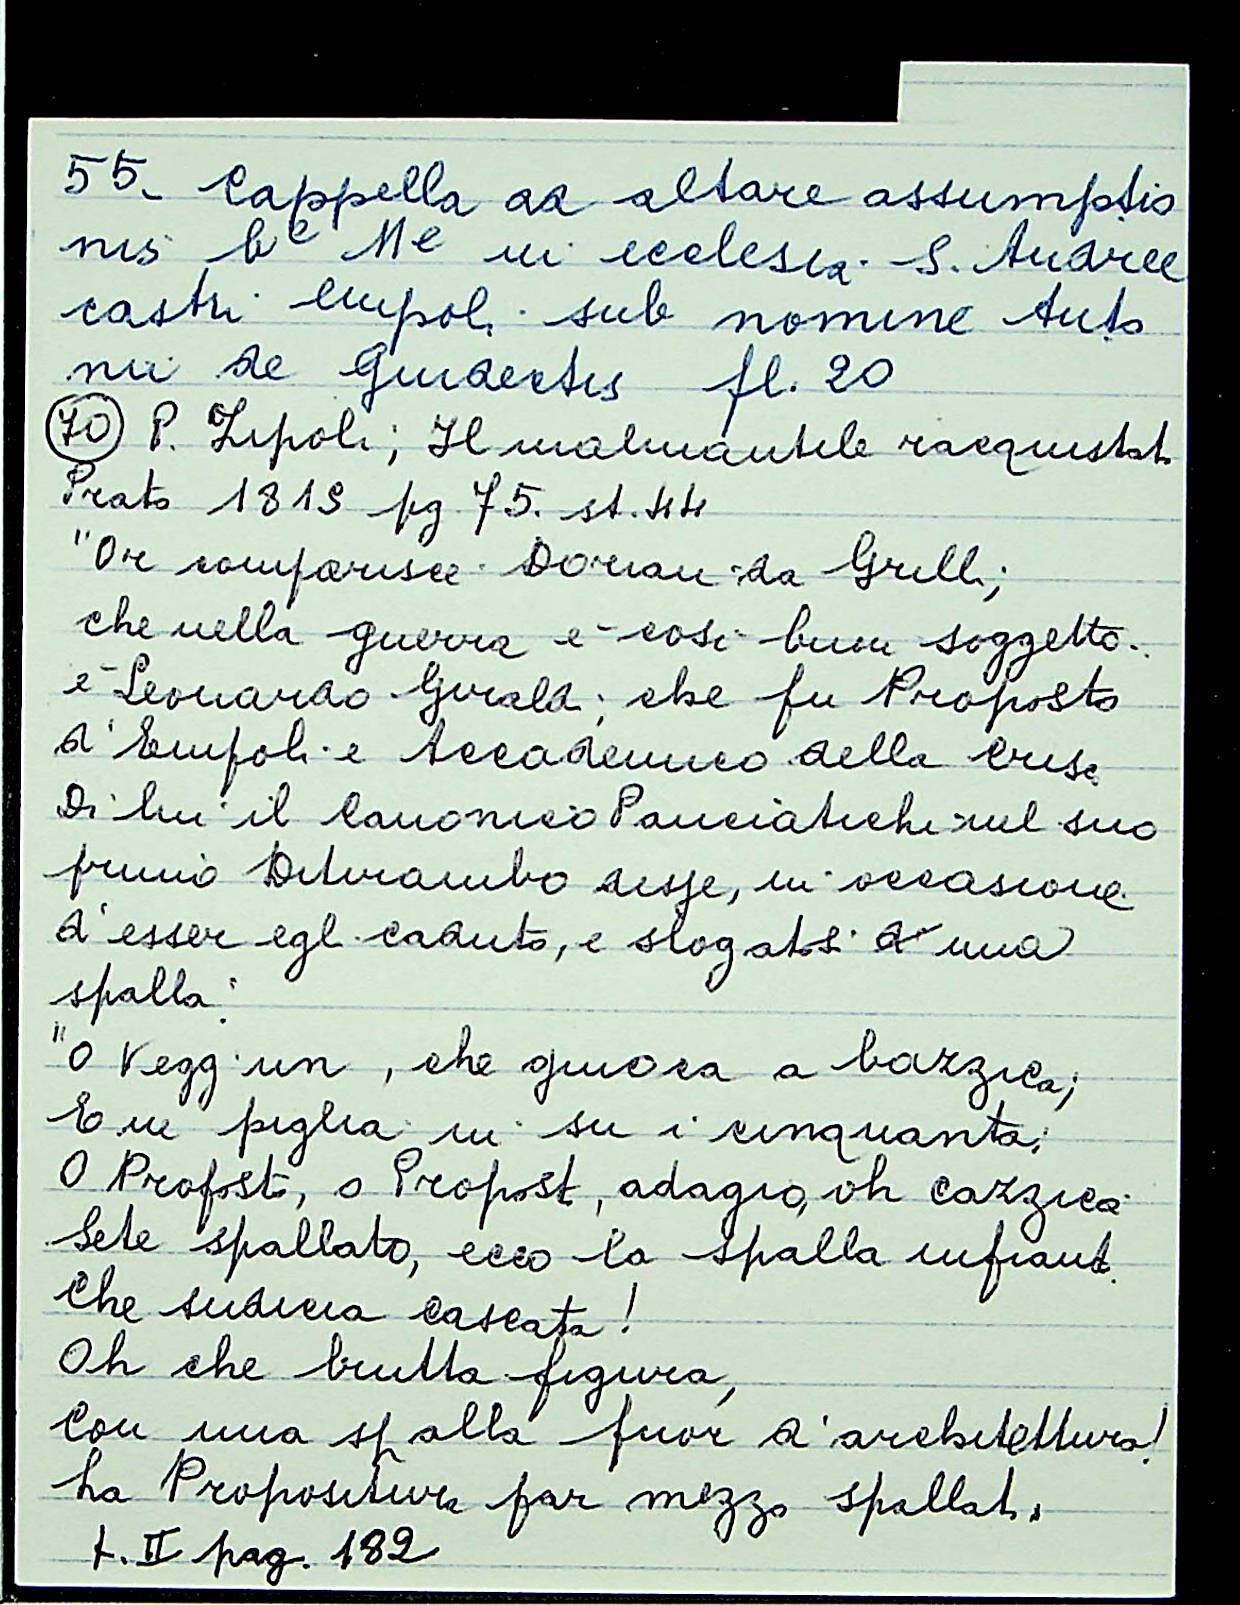 55. Cappella ad altare assumptio
nis be Me in ecclesia S. Andree
castri Empoli sub nomine Anto
nii de Guidectis fl. 20
70 P. Zipoli; Il malmantile racquistato
Prato 1815 pg 75. st. 44
"Or comparisce Dorian da Grilli;
che nella guerra è così buon soggetto..
è Leonardo Giraldi; che fu Proposto
d'Empoli e Accademico della Crusc
Di lui il Canonico Panciatichi nel suo
primo Ditirambo disse, in occasione
d'esser egli caduto, e slogatosi d'una
spalla:
"O Vegg'un, che giuoca a bazzica;
E ne piglia in su i cinquanta;
O Propost, o Propost, adagio, oh cazzica
Sete spallato, ecco la spalla infranta.
Che sudicia cascata!
Oh che brutta figura,
Con una spalla fuor d'architettura!
ha Propositura par mezzo spallata.
t. II pag. 182